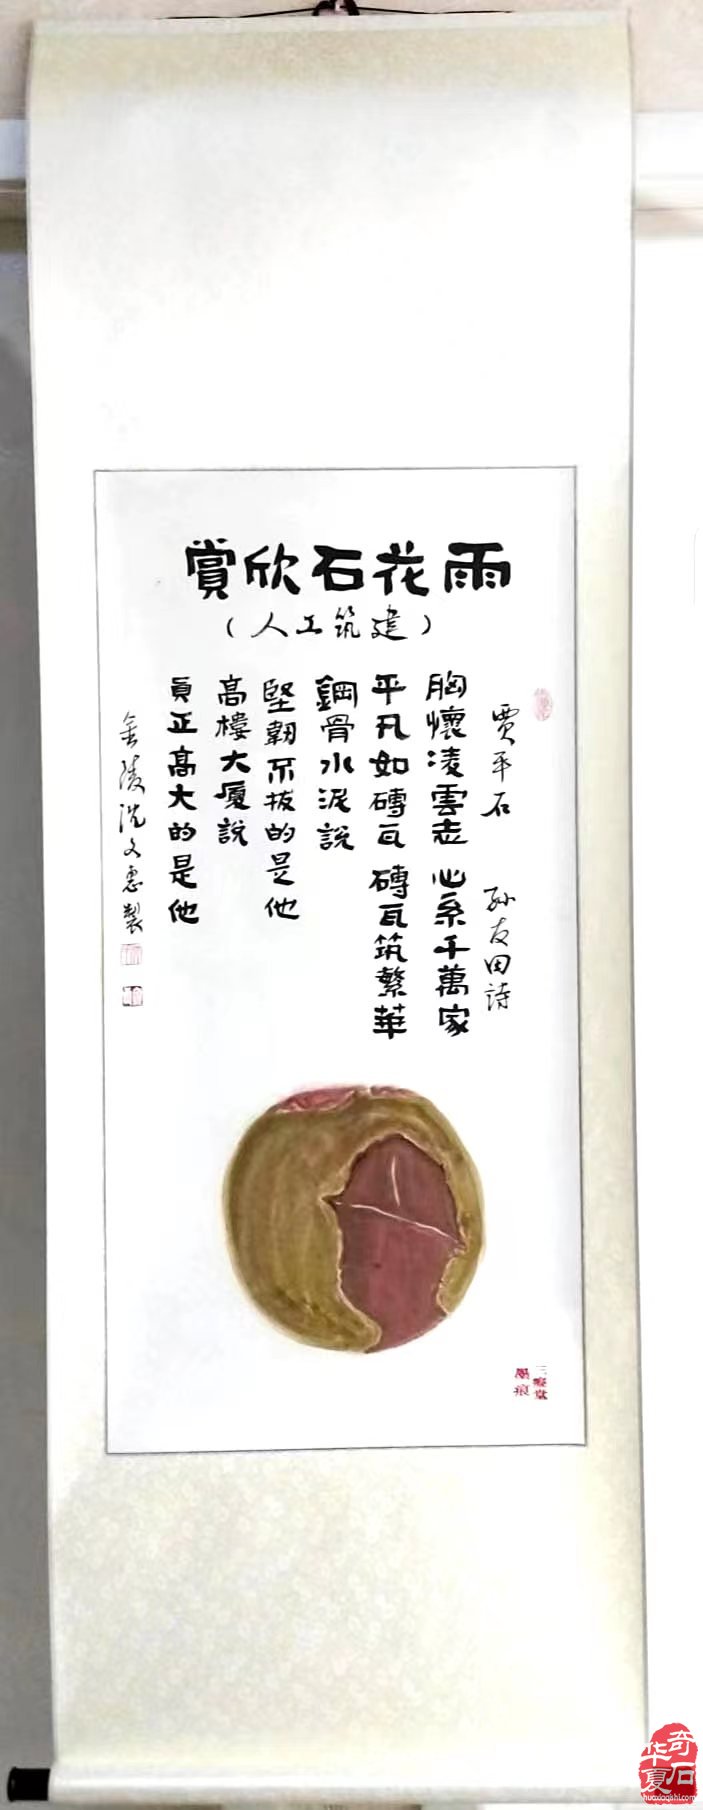 雨花石欣賞
(建筑工人)
賈平石 孙友田詩
胸懷凌雲志 心系千萬家
平凡如磚瓦 磚瓦筑繁華
鋼骨水泥說
堅韌不拔的是他
高樓大廈說
真正高大的是他
金陵沈文惠製
三癡堂
墨痕
华夏奇石
huaxiaqishi.com